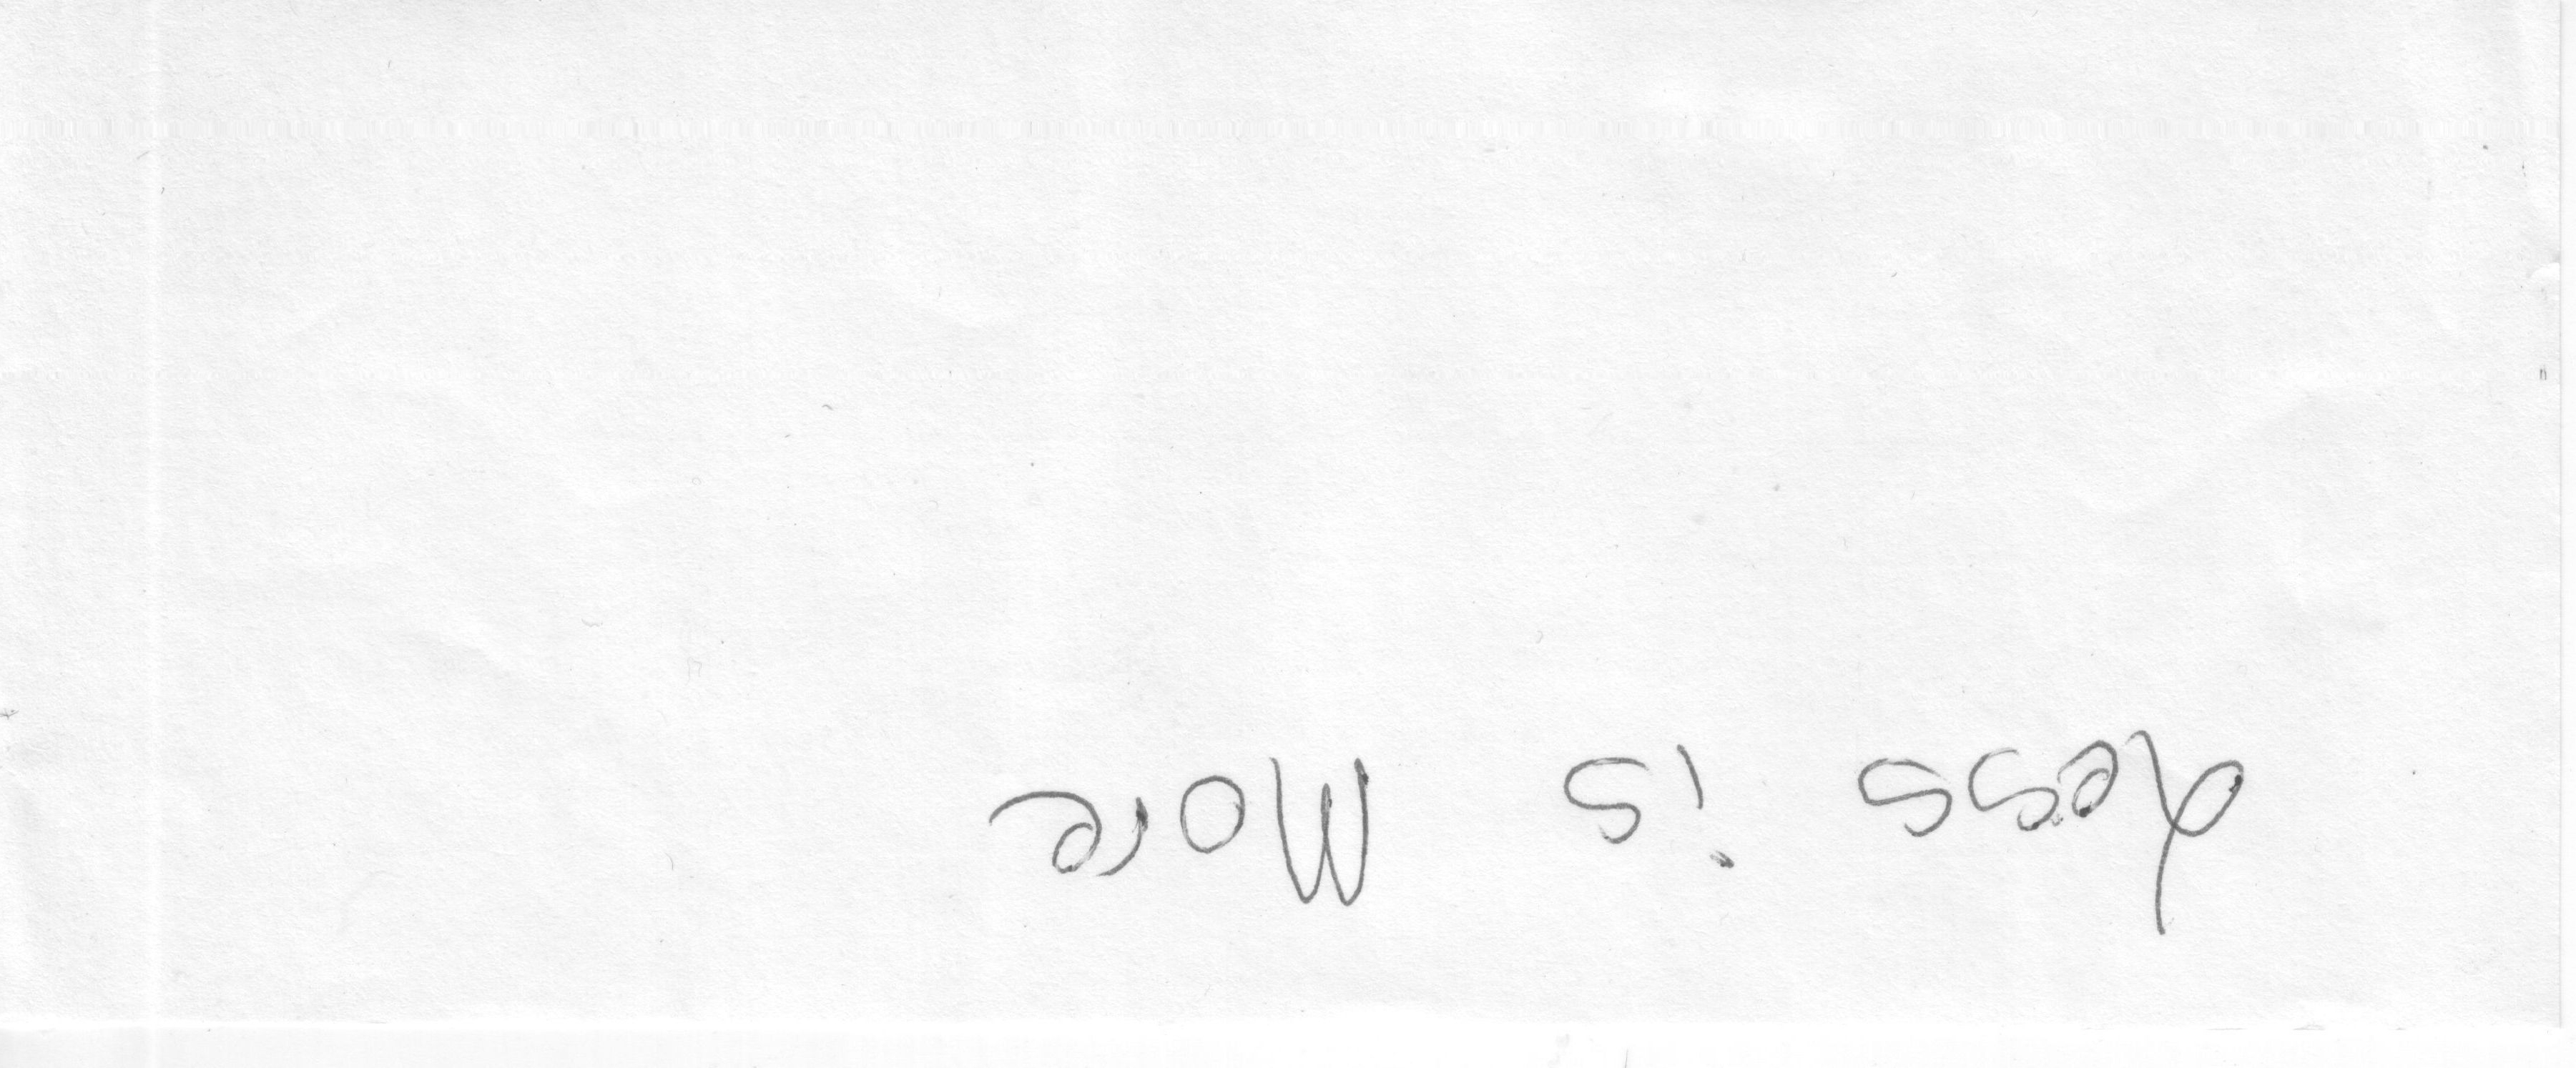 Less is More